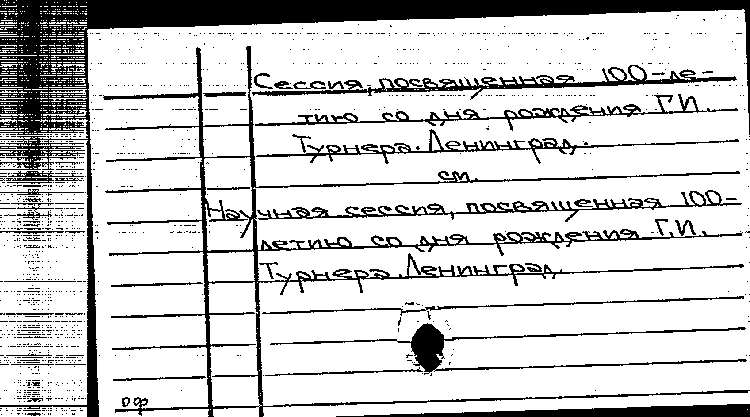 Сессия, посвященная 100-ле-
тию со дня рождения Г.И.
Турнера. Ленинград.
см.
Научная сессия, посвященная 100-
летию со дня рождения Г.И.
Турнера. Ленинград.
ОФ